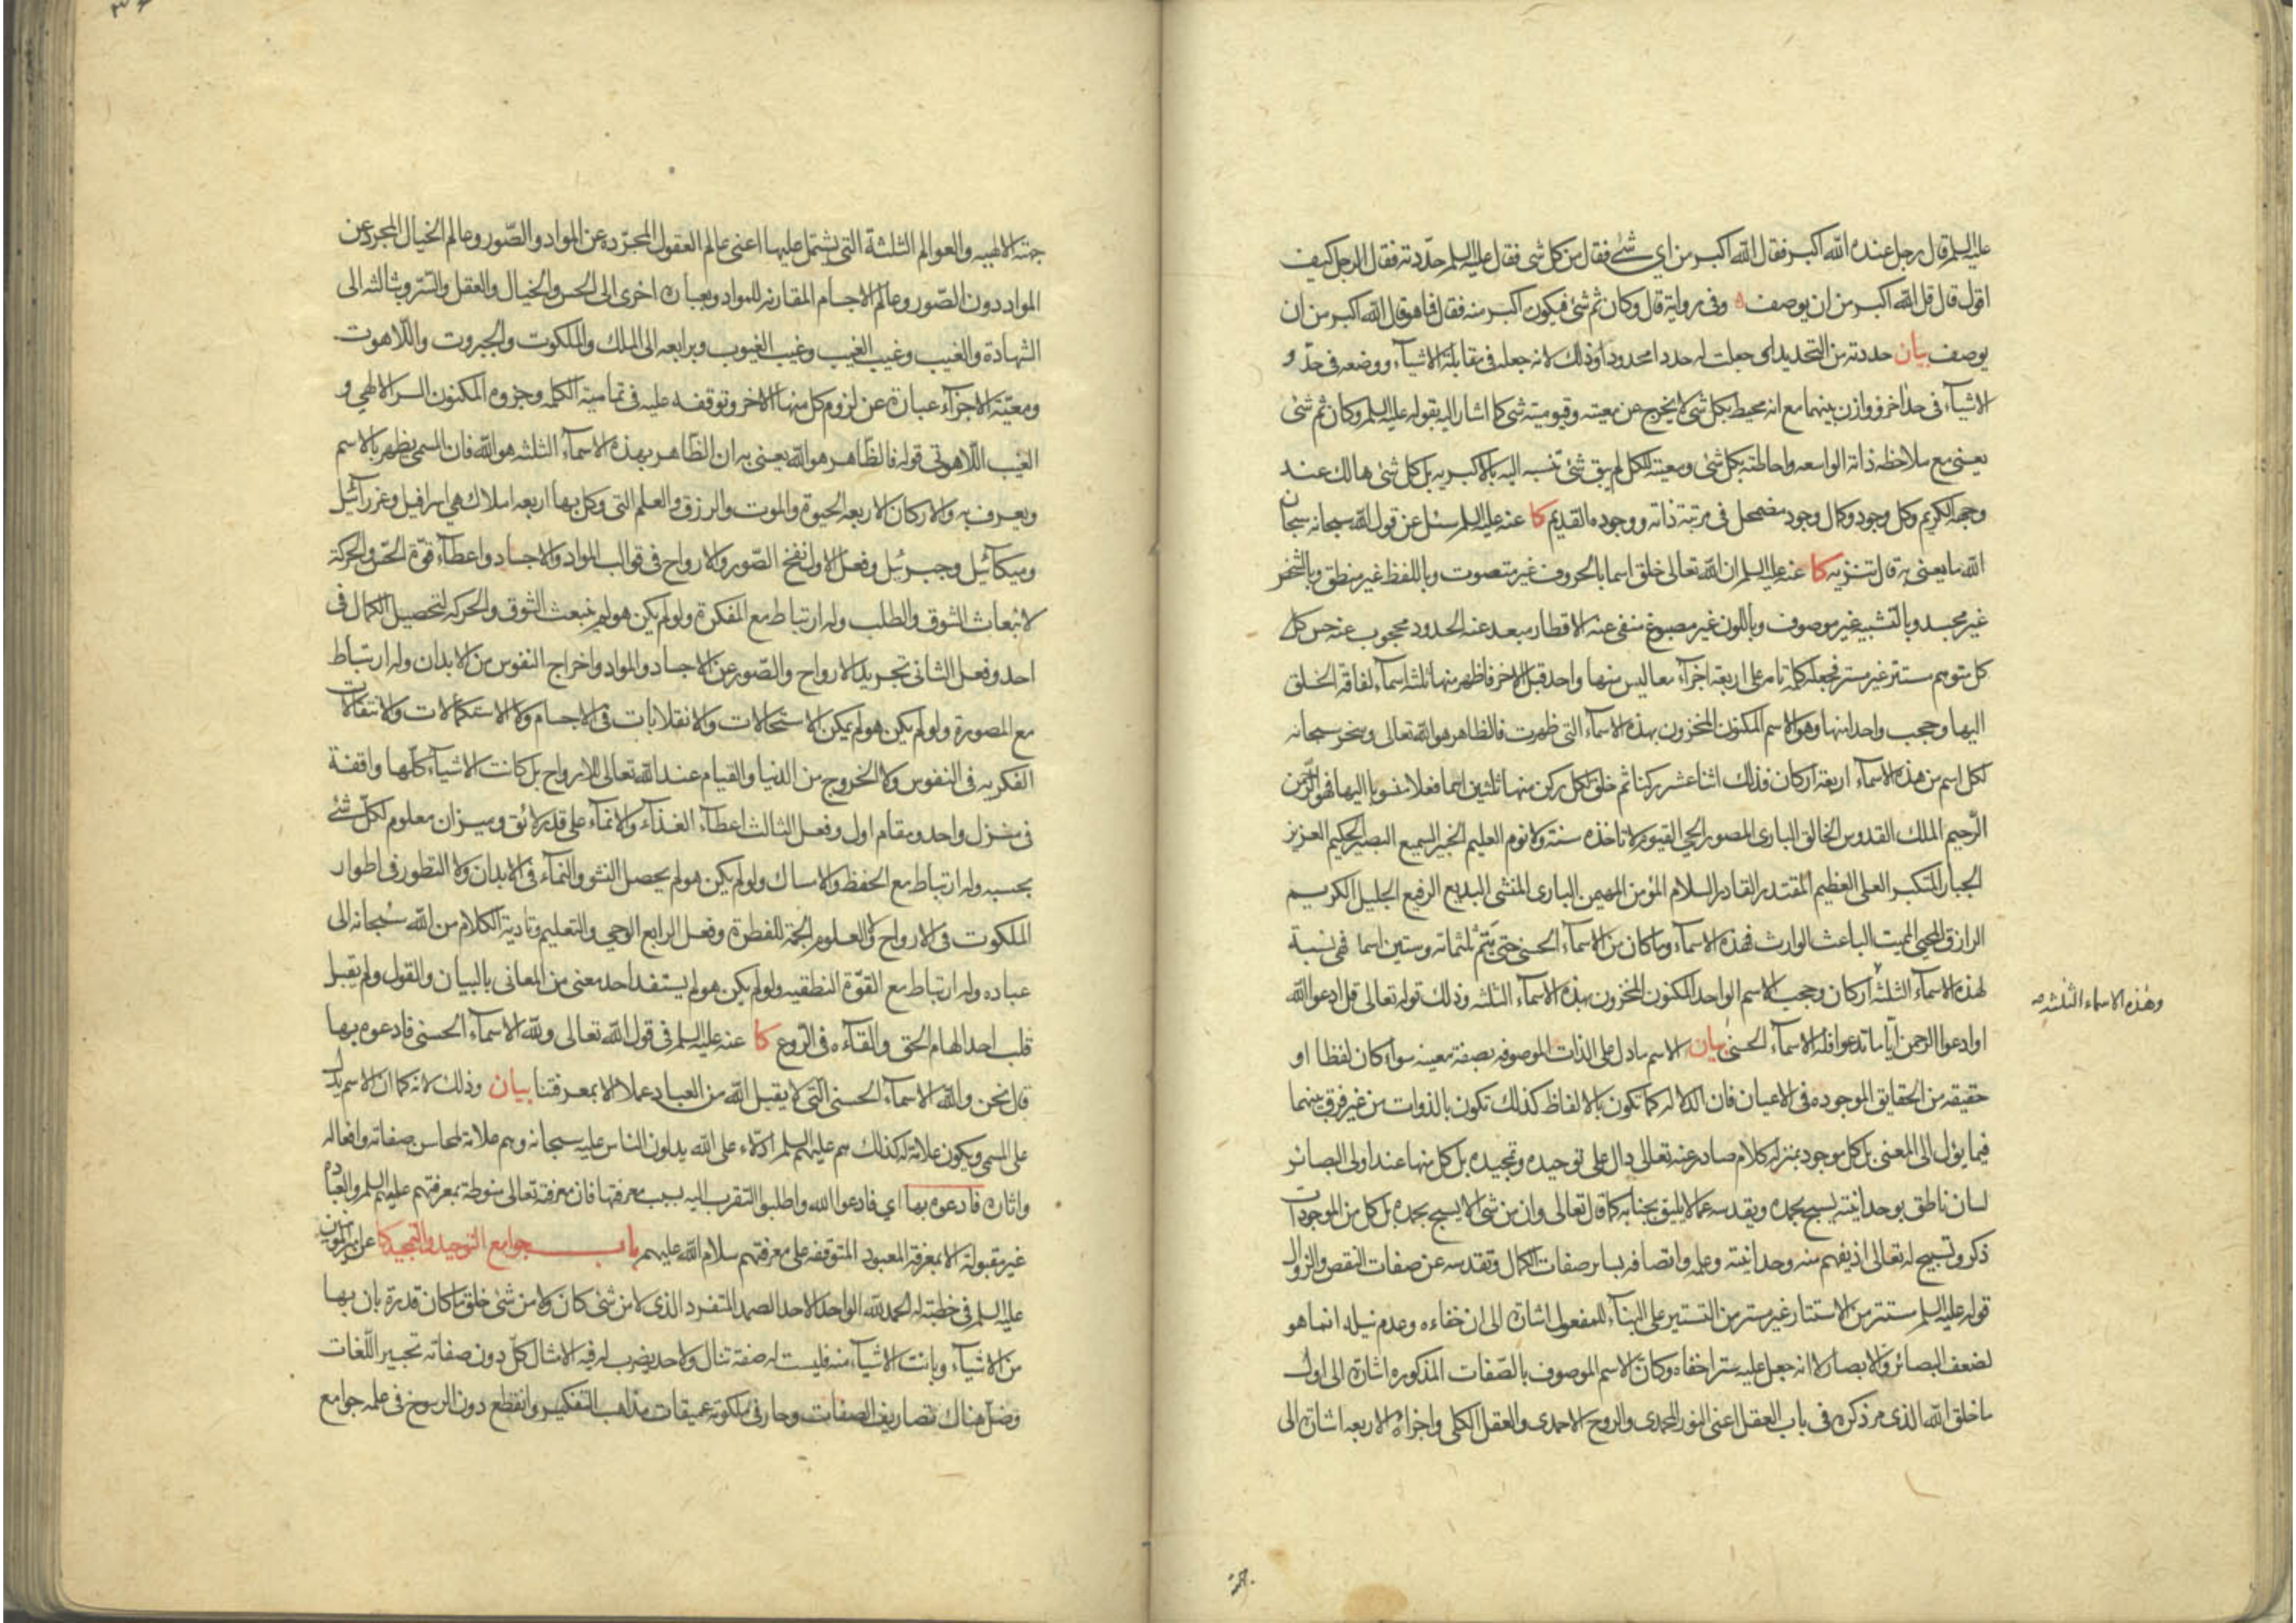 عليه السلم قال رجل عنده الله اكبر فقال الله اكبر من اي شئ فقال من كل شئ فقال عليه السلم حدّدته فقال الرجل كيف
اقول قال قل الله اكبر من ان يوصف ه وفى رواية قال وكان ثم شئ فيكون اكبر منه فقال فما هو قال الله اكبر من ان
يوصف بيان حددته من التحديد اى جعلت له حددا محدودا وذلك لانه جعله فى مقابلة الاشياء ووضعه فى حدّ و
الاشياء فى حد اخر ووازن بينهما مع انه محيط بكل شئ لا يخرج عن معيته وقيوميته شئ كما اشار اليه بقوله عليه السلم وكان ثم شئ
يعنى مع ملاحظه ذاته الواسعه واحاطته بكل شئ ومعيته للكل لم يبق شئ تنسبه اليه بالاكبريه بل كل شئ هالك عند
وجهه الكريم وكل وجود وكمال وجود مضمحل فى مرتبة ذاته ووجوده القديم كا عنه عليه السلم سئل عن قول الله سبحانه سبحان
الله ما يعنى به قال تنزيه كا عنه عليه السلم ان الله تعالى خلق اسما بالحروف غير متصوت وباللفظ غير منطق وبالشخص
غير مجسد وبالتشبيه غير موصوف وباللون غير مصبوغ منفى عنه الاقطار مبعد عنه الحدود محجوب عنه حس كل
كل متوهم مستتر غير مستر فجعله كلمة تامه على اربعة اجزاء معا ليس منها واحد قبل الاخر فاظهر منها ثلثة اسماء لفاقة الخلق
اليها وحجب واحدا منها وهو الاسم المكنون المخزون بهذه الاسماء التى ظهرت فالظاهر هو الله تعالى وسخر سبحانه
لكل اسم من هذه الاسماء اربعة اركان فذلك اثنا عشر ركنا ثم خلق لكل ركن منها ثلثين اسما فعلا منسوبا اليها فهو الرّحمن
الرّحيم الملك القدوس الخالق البارى المصور الحى القيوم لا تاخذه سنة ولا نوم العليم الخبير السميع البصير الحكيم العزيز
الجبار المتكبر العلى العظيم المقتدر القادر السلام المؤمن المهيمن البارى المنشى البديع الرفيع الجليل الكريم
الرازق المحيى المميت الباعث الوارث فهذه الاسماء وما كان من الاسماء الحسنى حتى يتم ثلثمائه وستين اسما فهى نسبة
لهذه الاسماء الثلثة اركان وحجب الاسم الواحد المكنون المخزون بهذه الاسماء الثلثه وذلك قوله تعالى قل ادعوا الله
وهذه الاسماء الثلثه
او ادعوا الرحمن ايّاما تدعوا فله الاسماء الحسنى بيان الاسم ما دل على الذات الموصوفه بصفة معينه سواء كان لفظا او
حقيقه من الحقايق الموجوده فى الاعيان فان الدلاله كما تكون بالالفاظ كذلك تكون بالذوات من غير فرق بينهما
فيما يؤل الى المعنى بل كل موجود بمنزله كلام صادر عنه تعالى دال على توحيده وتمجيده بل كل منها عند اولى البصائر
لسان ناطق بوحدانيته يسبح بحمده ويقدسه عما لا يليق بجنابه كما قال تعالى وان من شئ الا يسبح بحمده بل كل من الموجودات
ذكر وتسبيح له تعالى اذ يفهم منه وحدانيته وعلمه واتصافه بساير صفات الكمال وتقدسه عن صفات النقص والزوال
قوله عليه السلم مستتر من الاستتار غير مستر من التستير على البناء للمفعول اشارة الى ان خفاءه وعدم نيله انما هو
لضعف البصائر والابصار لا انه جعل عليه سترا خفاه وكان الاسم الموصوف بالصّفات المذكوره اشارة الى اول
ما خلق الله الذى مر ذكره فى باب العقل اعنى النور المحمدى والروح الاحمدى والعقل الكلى واجزاؤه الاربعه اشارة الى
جهته
جهته الالهيه والعوالم الثلثة التى يشتمل عليها اعنى عالم العقول المجرّده عن المواد والصّور وعالم الخيال المجرد عن
المواد دون الصّور وعالم الاجسام المقارنه للمواد وبعبارة اخرى الى الحس والخيال والعقل والسّر وبثالثه الى
الشهادة والغيب وغيب الغيب وغيب الغيوب وبرابعه الى الملك والملكوت والجبروت واللّاهوت
ومعيّة الاجزاء عبارة عن لزوم كل منها الاخر وتوقفه عليه فى تمامية الكلمه وجزوه المكنون السر الالهى و
الغيب اللّاهوتى قوله فالظاهر هو الله يعنى به ان الظّاهر بهذه الاسماء الثلثه هو الله فان المسمى يظهر بالاسم
ويعرف به والاركان الاربعه الحيوة والموت والرزق والعلم التى وكل بها اربعه املاك هى اسرافيل وعزرائيل
وميكائيل وجبرئيل وفعل الاول نفخ الصّور والارواح فى قوالب المواد والاجساد واعطاء قوّة الحسّ والحركة
لانبعاث الشوق والطلب وله ارتباط مع المفكرة ولو لم يكن هو لم ينبعث الشوق والحركه لتحصيل الكمال فى
احد وفعل الثانى تجريد الارواح والصّور عن الاجساد والمواد واخراج النفوس من الابدان وله ارتباط
مع المصورة ولو لم يكن هو لم يمكن الاستحالات والانقلابات فى الاجسام ولا الاستكمالات والانتقالات
الفكريه فى النفوس ولا الخروج من الدنيا والقيام عند الله تعالى للارواح بل كانت الاشياء كلّها واقفة
فى منزل واحد ومقام اول وفعل الثالث اعطاء الغذاء والانماء على قدر لائق وميزان معلوم لكل شئ
بحسبه وله ارتباط مع الحفظ والامساك ولو لم يكن هو لم يحصل النشو والنماء فى الابدان ولا التطور فى اطوار
الملكوت فى الارواح والعلوم الجمّة للفطرة وفعل الرابع الوحى والتعليم وتادية الكلام من الله سبحانه الى
عباده وله ارتباط مع القوّة النطقيه ولو لم يكن هو لم يستفد احد معنى من المعانى بالبيان والقول ولم يقبل
قلب احد الهام الحق والقاءه فى الرّوع كا عنه عليه السلم فى قول الله تعالى ولله الاسماء الحسنى فادعوه بها
قال نحن والله الاسماء الحسنى التى لا يقبل الله من العباد عملا الا بمعرفتنا بيان وذلك لانه كما ان الاسم يدل
على المسمى ويكون علامة له كذلك هم عليهم السلم ادلاء على الله يدلون الناس عليه سبحانه وهم علامة لمحاسن صفاته وافعاله
واثاره فادعوه بها اي فادعوا الله واطلبوا التقرب اليه بسبب معرفتها فان معرفته تعالى منوطة بمعرفتهم عليهم السلم والعباده
غير مقبولة الا بمعرفة المعبود المتوقفه على معرفتهم سلام الله عليهم باب جوامع التوحيد والتمجيد كا عن امير المؤمنين
عليه السلم فى خطبته له الحمد لله الواحد الاحد الصمد المتفرد الذى لا من شئ كان ولا من شئ خلق ما كان قدرة بان بها
من الاشياء وبانت الاشياء منه فليست له صفة تنال ولا حد يضرب له فيه الامثال كلّ دون صفاته تحبير اللّغات
وضلّ هناك تصاريف الصفات وحار فى ملكوته عميقات مذاهب التفكير وانقطع دون الرسوخ فى علمه جوامع